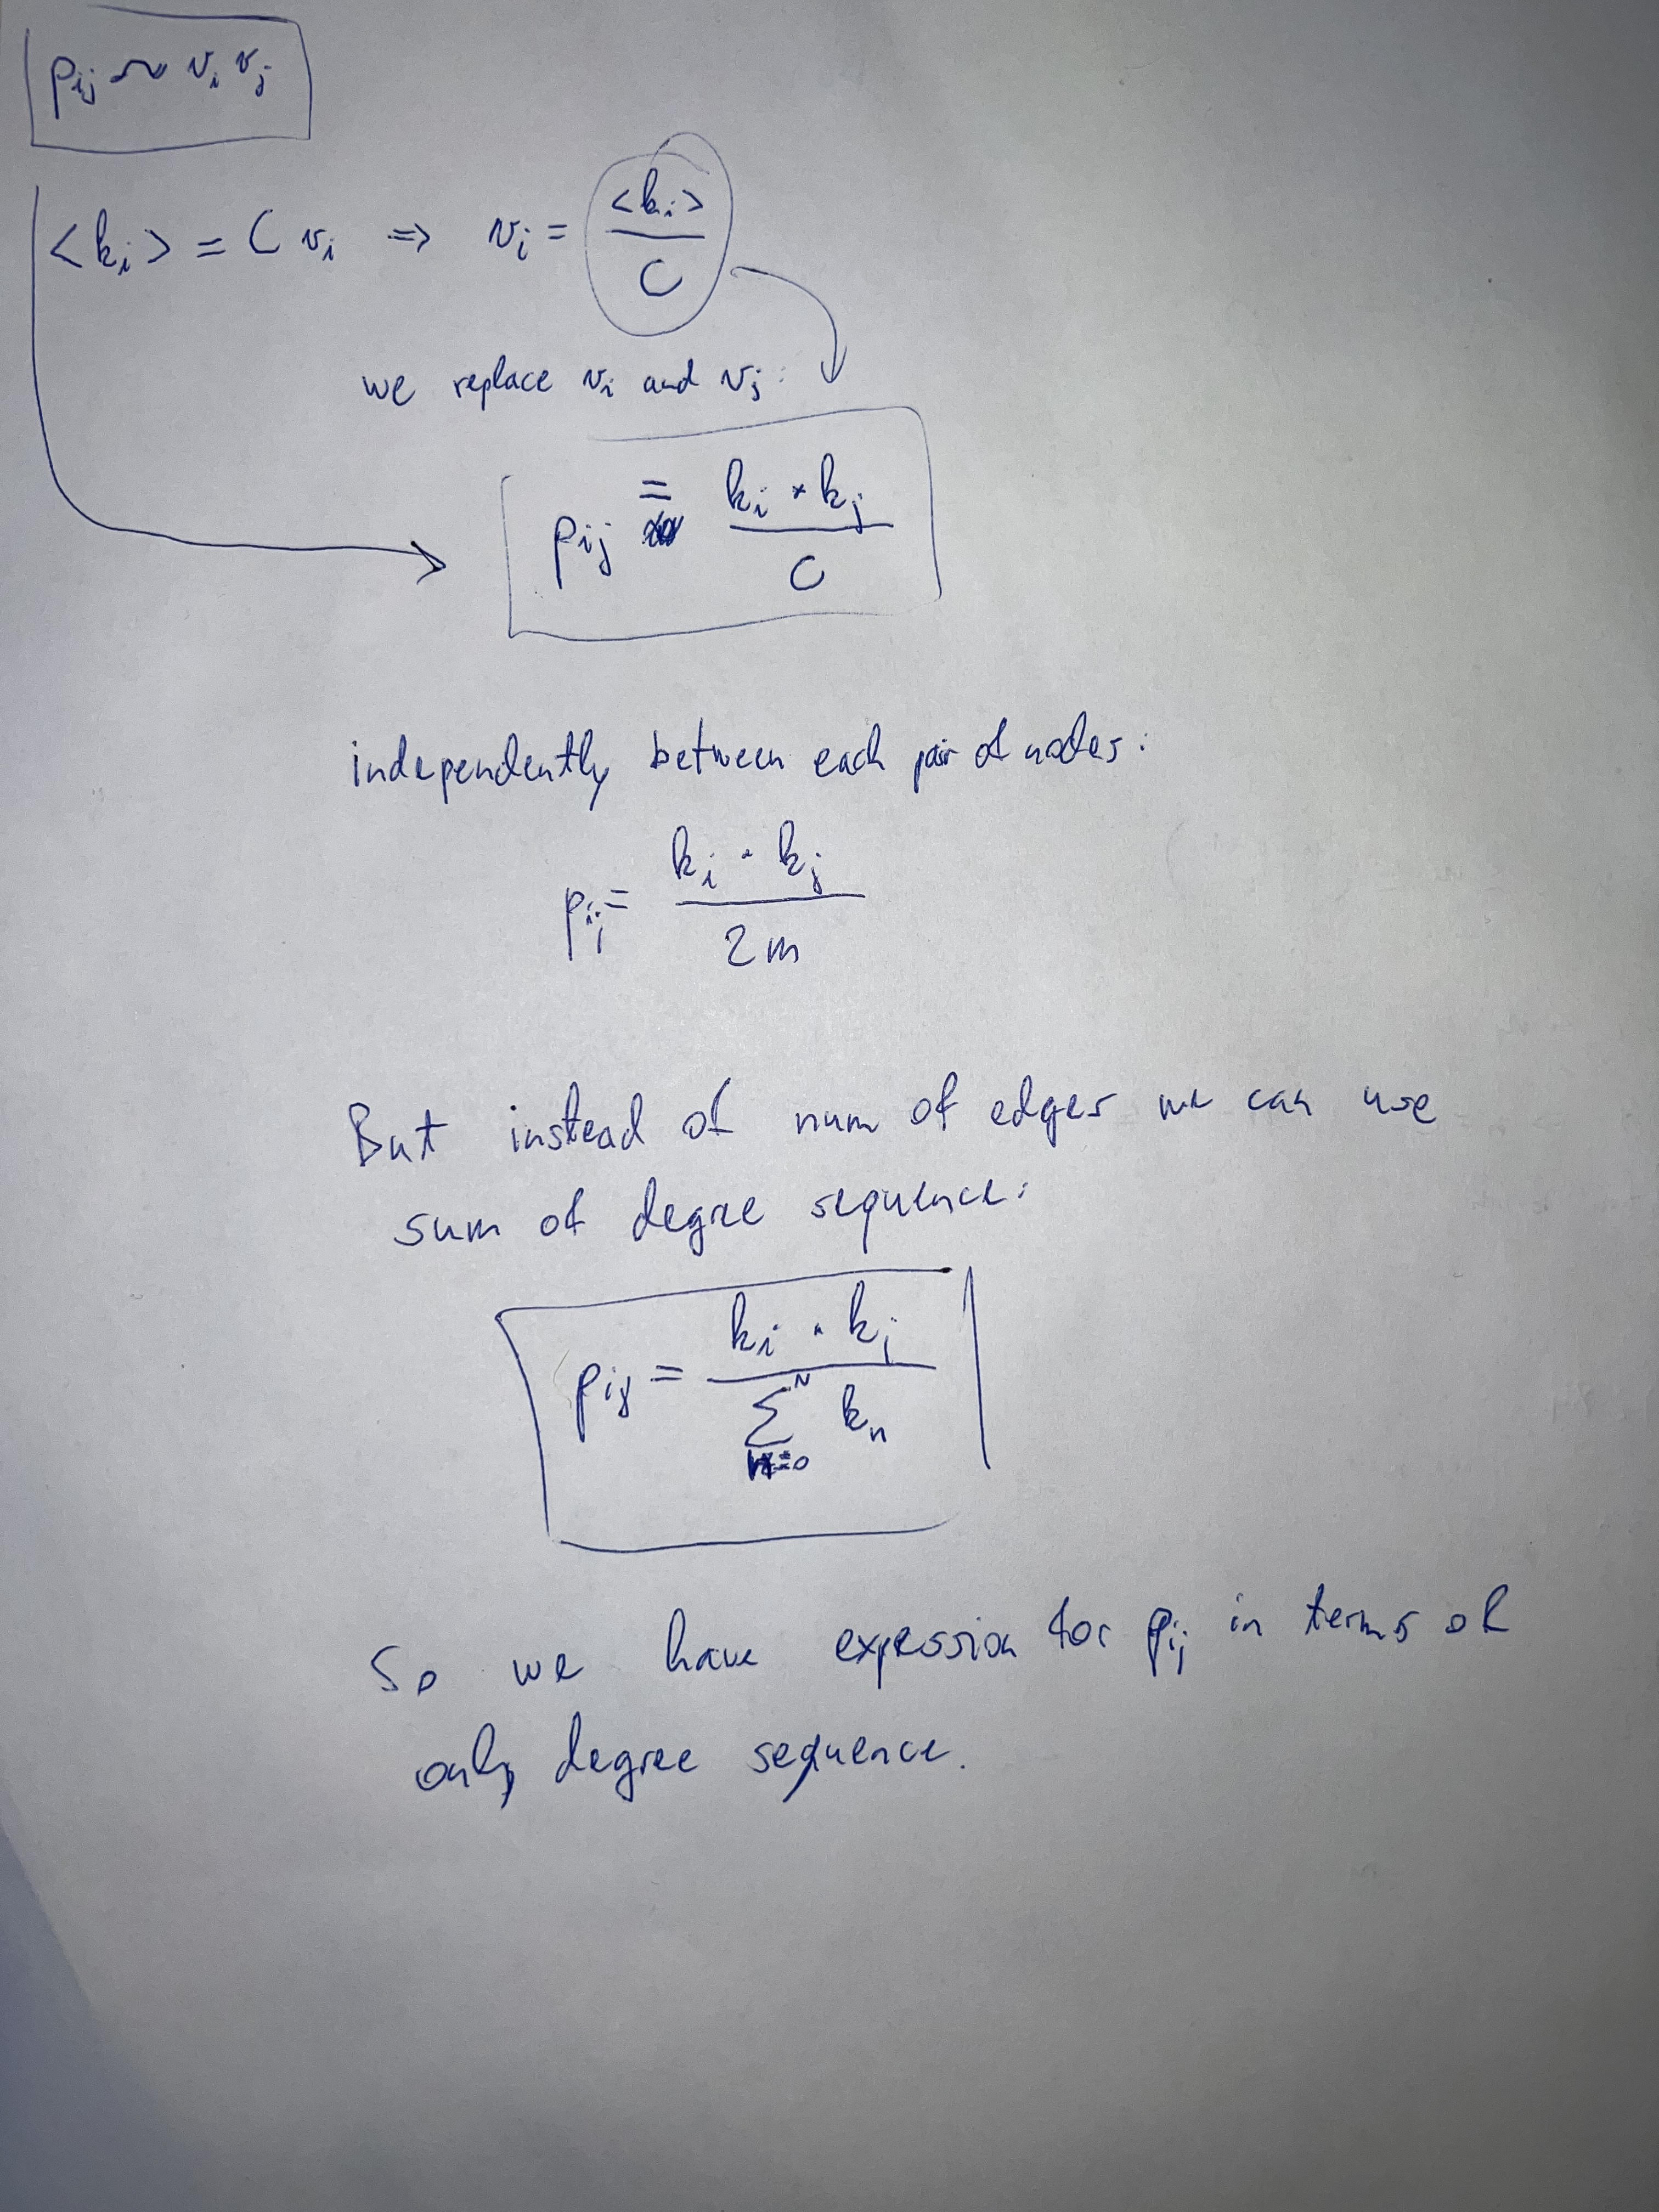 p_ij ~ v_i v_j
<k_i> = C v_i ⇒ v_i = <k_i> / C
we replace v_i and v_j :
p_ij = k_i * k_j / C
independently between each pair of nodes:
p_ij = k_i · k_j / 2m
But instead of num of edges we can use
sum of degree sequence:
p_ij = k_i · k_j / ∑_{n=0}^{N} k_n
So we have expression for p_ij in terms of
only degree sequence.